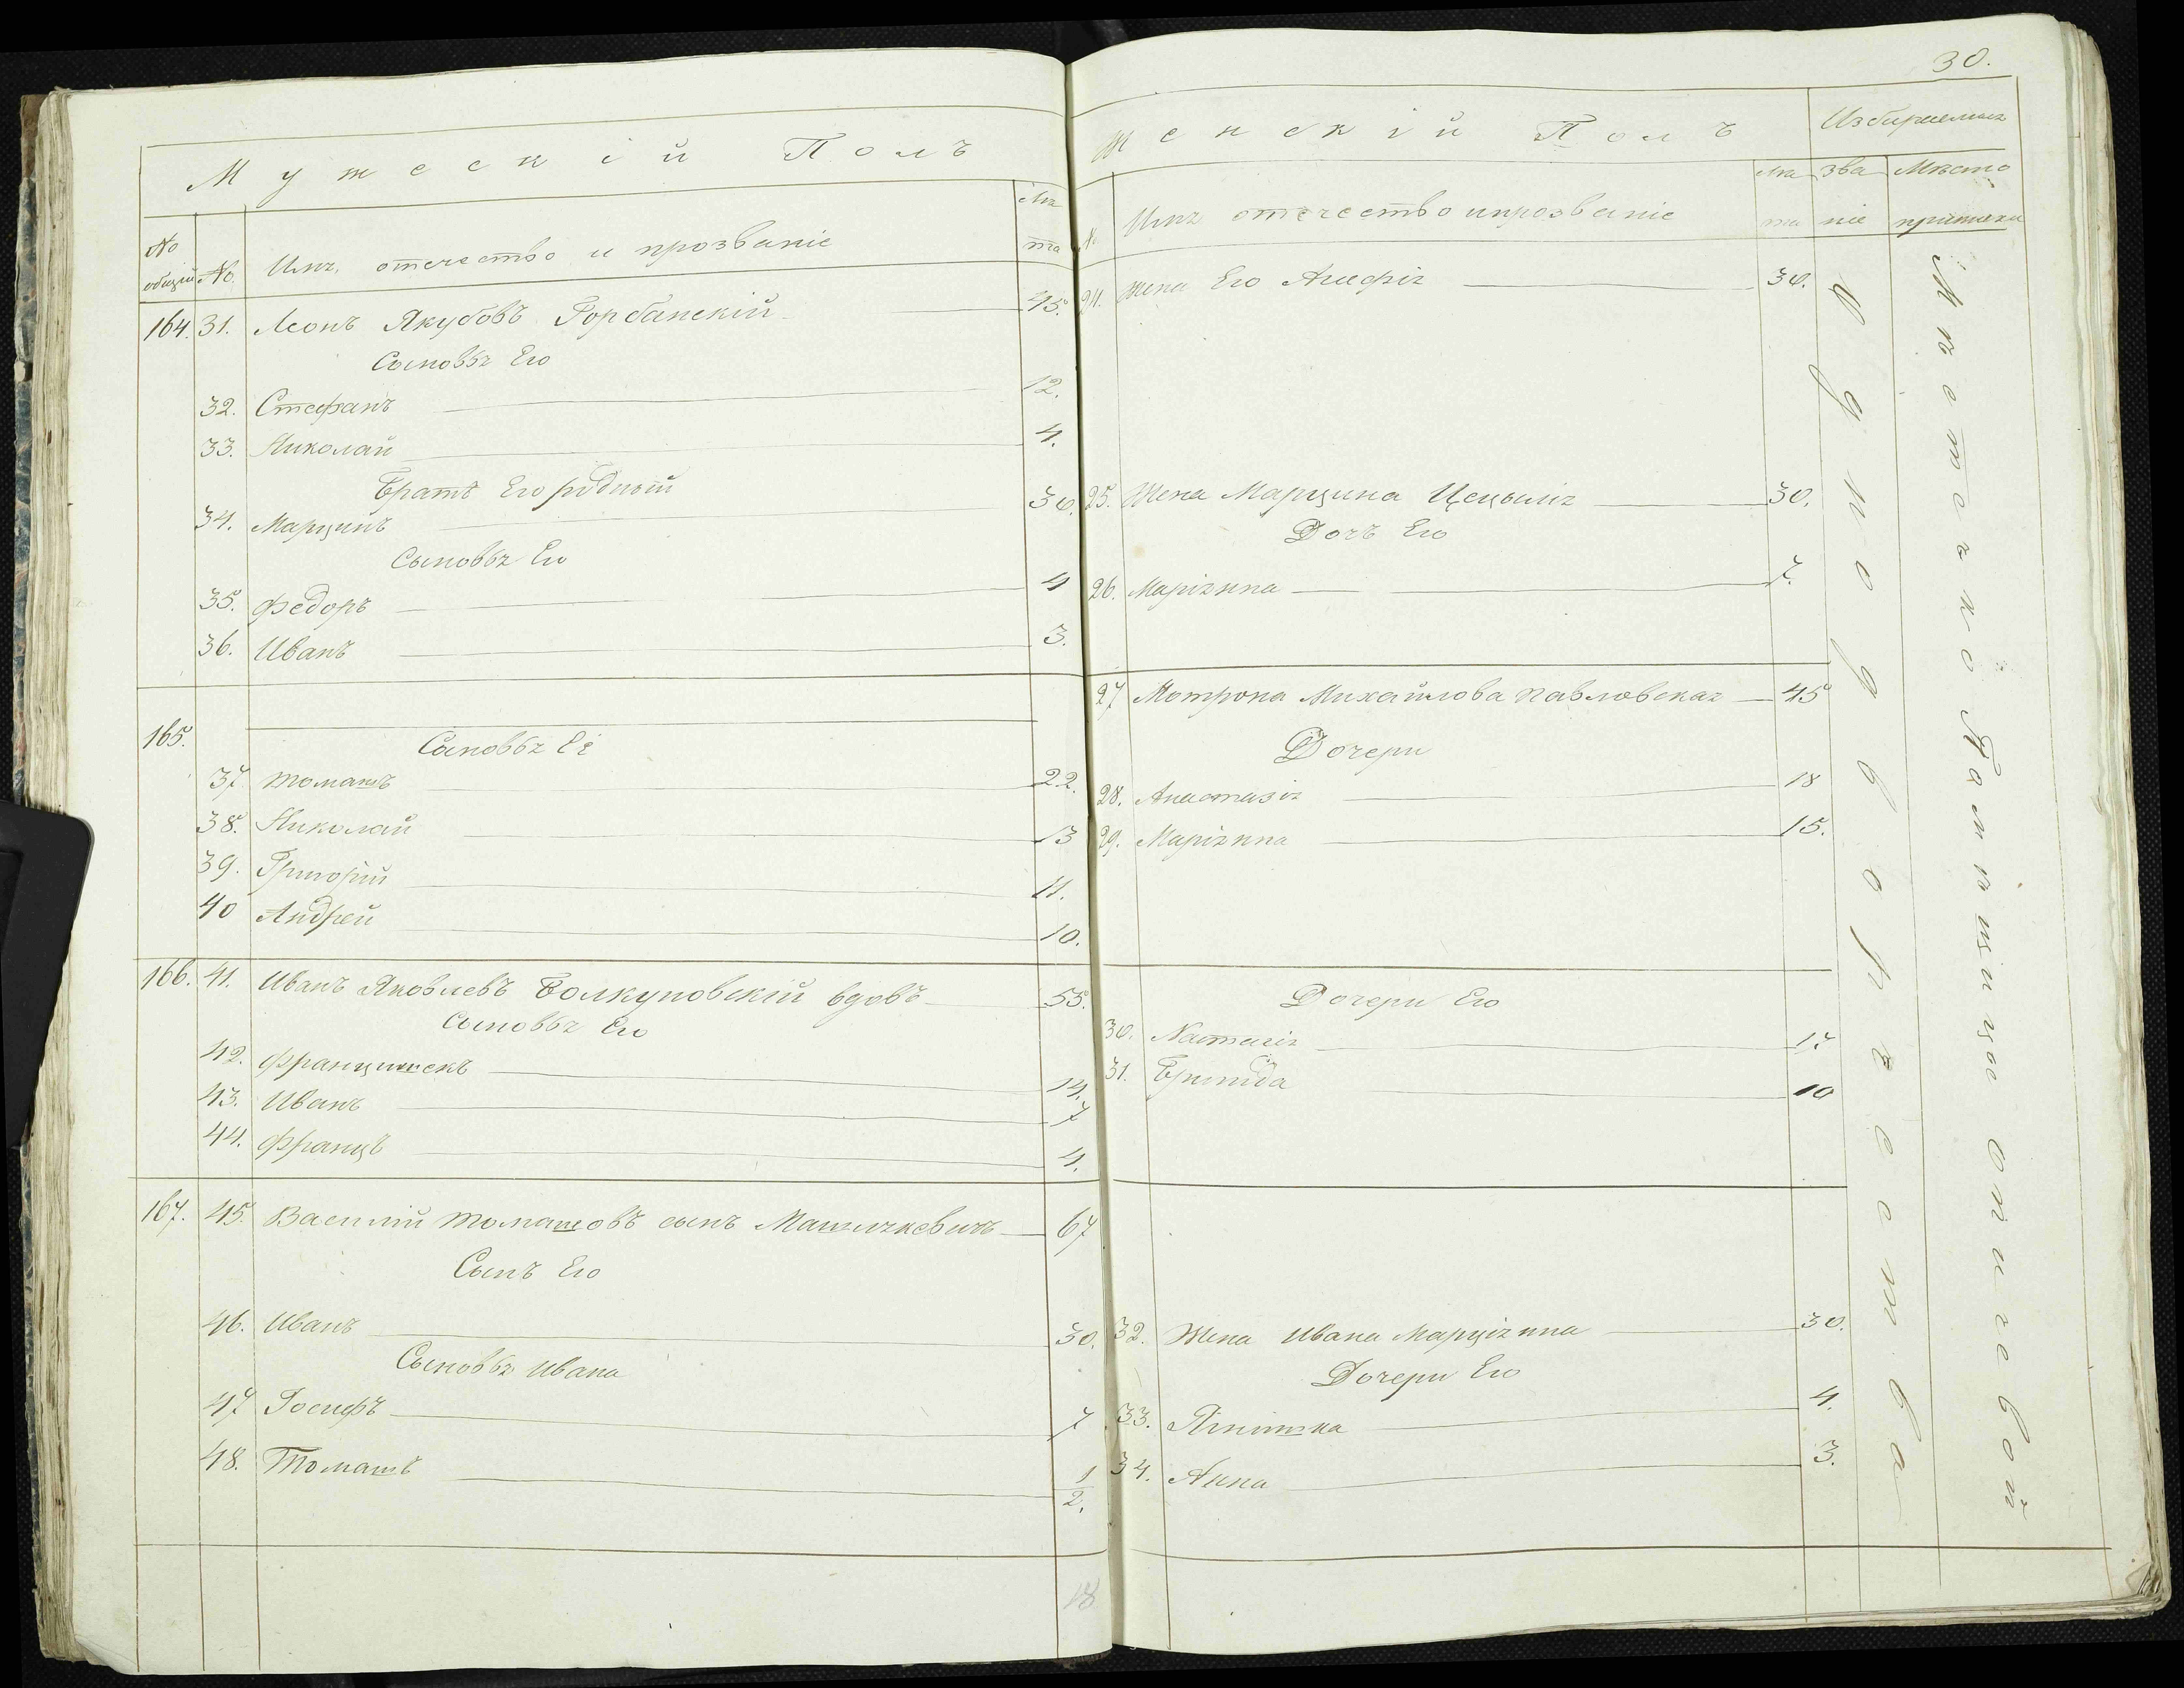 30.
Мужескій Полъ
№ общій
№
Имя, отечество и прозваніе
Лѣта
164. 31. Леонъ Якубовъ Горбанскій 45.
Сыновья Его
32. Стефанъ 12.
33. Николай 4.
Братъ Его родный
34. Марцинъ 30.
Сыновья Его
35. Федоръ 4
36. Иванъ 3.
165.
Сыновья Ея
37 Томашъ 22.
38. Николай 13
39. Григорій 11.
40 Андрей 10.
166. 41. Иванъ Яковлевъ Болкуновскій вдовъ 55.
Сыновья Его
42. Францишекъ 14.
43. Иванъ 7
44. Францъ 4.
167. 45. Василій Томашовъ сынъ 67
Сынъ Его
46. Иванъ 30.
Сыновья Ивана
47 Іосифъ 7
48. Томашъ 1/2.
18
Женскій Полъ
Избираемыя
№
Имя отечество и прозваніе
Лѣта
Званіе
Мѣсто приписки
24. Жена Его Агафія 30.
25. Жена Марцина Цецылія 30.
Дочь Его
26. Маріянна 7.
27 Мотрона Михайлова Павловская 45
Дочери
28. Анастазія 18
29. Маріянна 15.
Дочери Его
30. Настазія 17
31. Бригида 10
32. Жена Ивана Марціянна 30.
Дочери Его
33. Ягнишка 4.
34. Анна 3.
Однодворчества